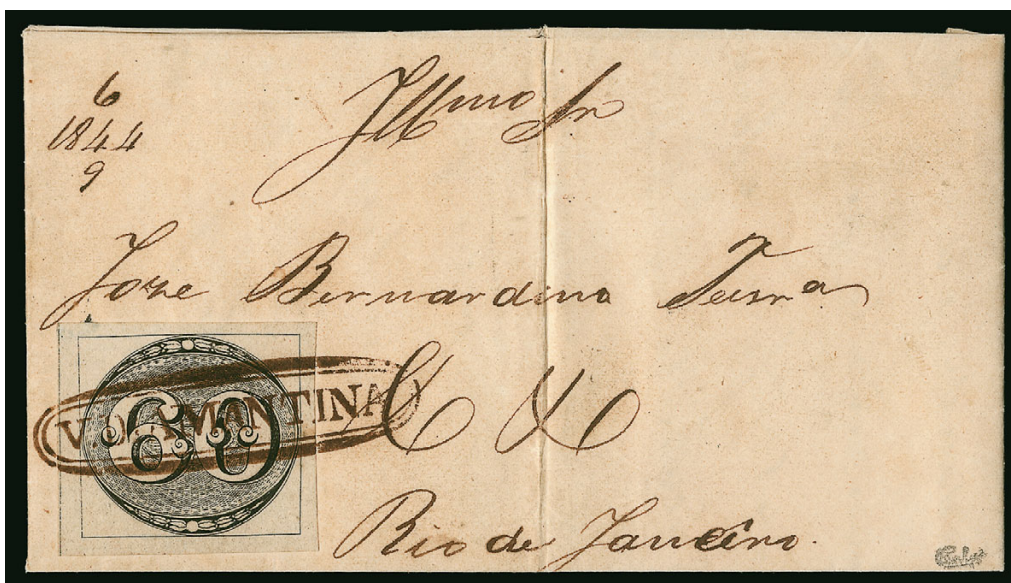 6
1844
9
Illmo Snr
Joze Bernardino
60
V.DIAMANTINA
Rio de Janeiro.